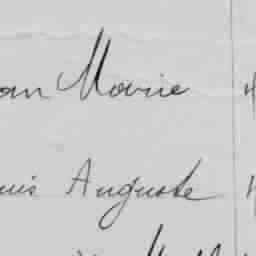 an Marie
uis Auguste